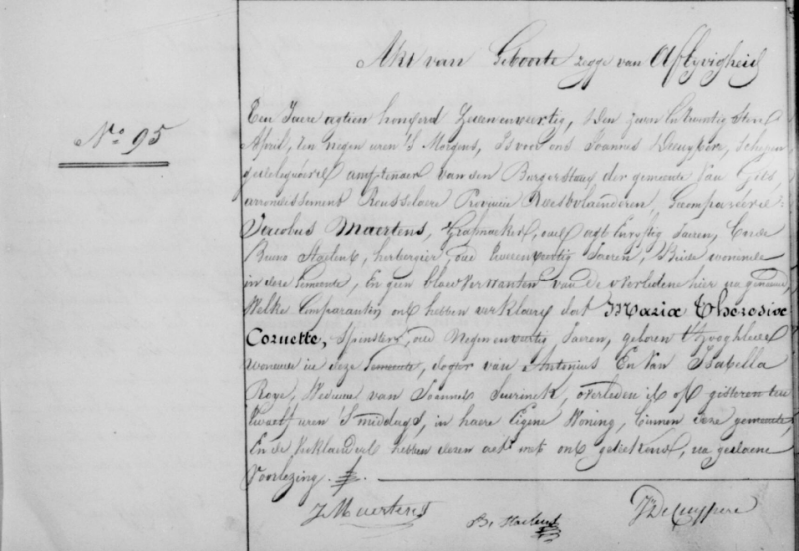 Akt van Geboorte zegge van Aflyvigheid
N° 95
Een Jaere agtien honderd Zevenenveertig, den
April, ten negen uren 's Morgens, Is voor ons Joannes Decuypere, Schepen
gedelegueerd amptenaer van den Burgerstand der gemeente van Gits,
arrondissement Rousselaere Provincie Westvlaenderen, Gecompareerd
Jacobus Maertens, Grafmaker, oud agtenvyftig Jaeren, Ende
Bruno Staelens, herbergier, oud Jaeren, Beide woonende
in deze Gemeente, En geen bloedverwanten van de overledene hier na genoemd,
Welke Comparanten ons hebben verklaerd dat Maria Theresia
Cornette, Spinster, oud Negenenveertig Jaeren, geboren t'Hooghlede
woonende in deze Gemeente, dogter van Antonius En Van Isabella
Roye, Weduwe van Joannes, overleden is op gisteren ten
twaelf uren 's middags, in haere Eigene Woning, binnen deze gemeente,
En de Verklaerders hebben dezen akt met ons geteekend, na gedaene
Voorlezing.
J Maertens B. Staelens J. DeCuypere